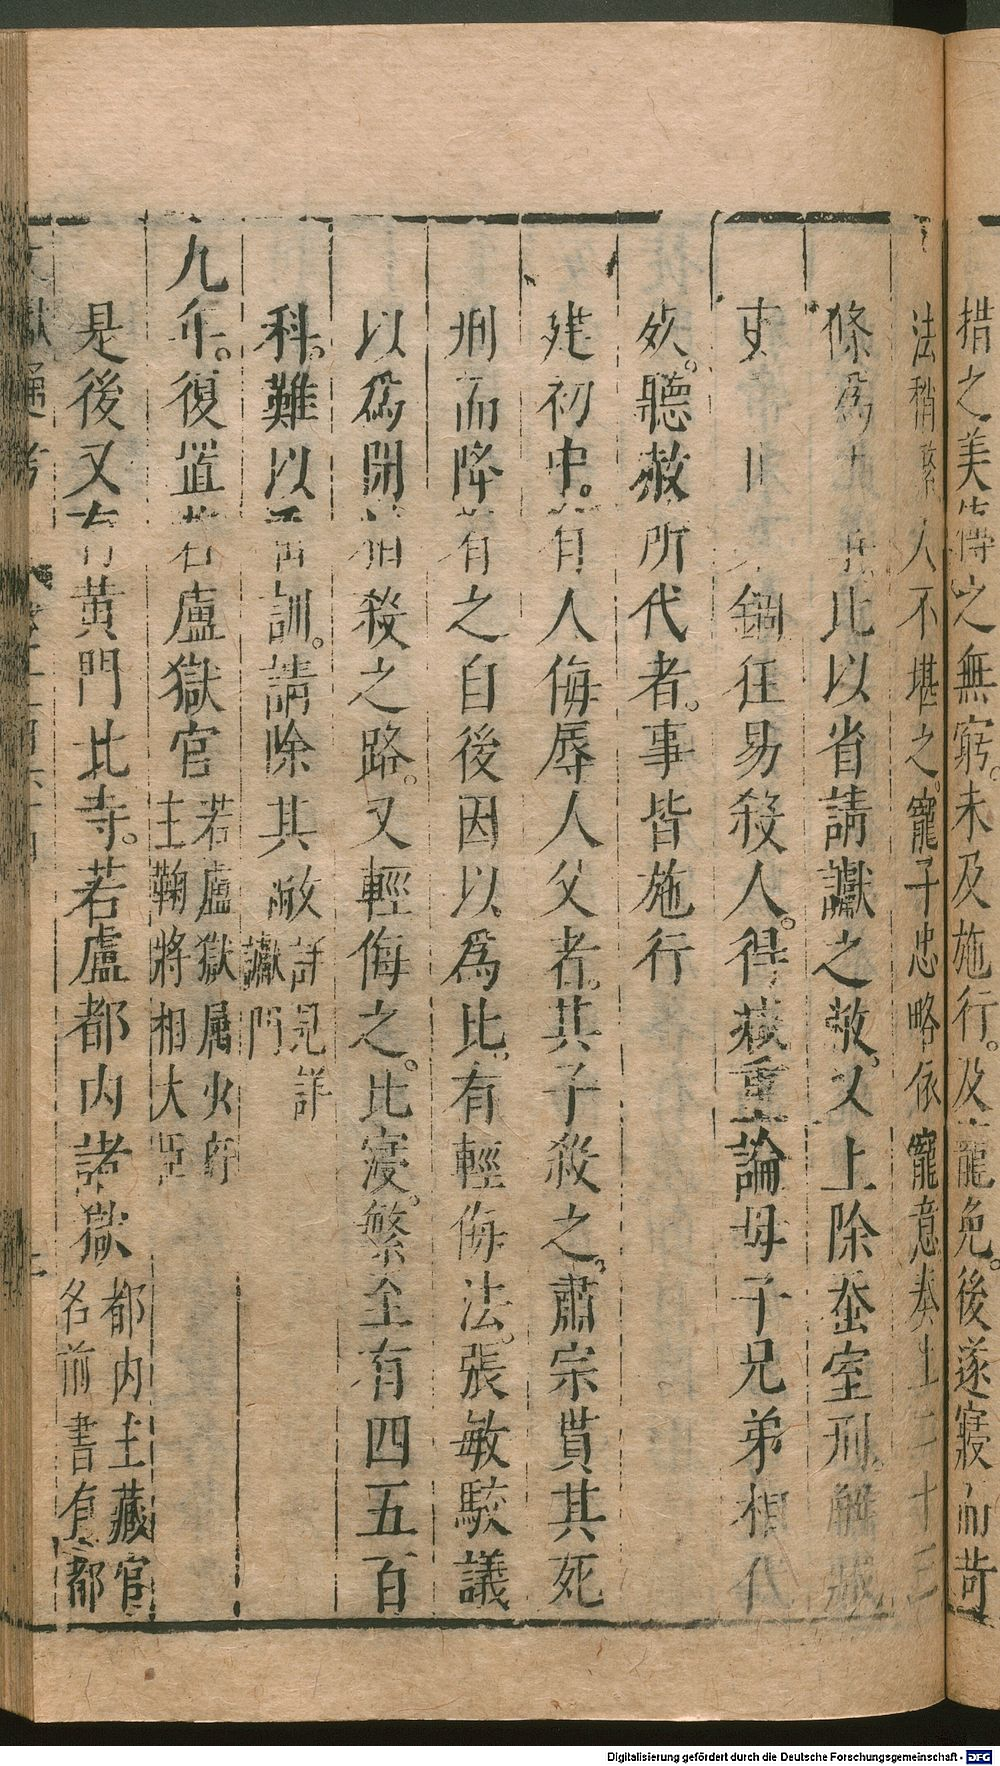 措之美傳之無窮。未及施行。及寵免。後遂寢而苛
法稍繁人不堪之。寵子忠略依寵意奏上二十三
條爲 比以省請讞之敝。又上除蚕室刑。解贓
吏 錮狂易殺人。得減重論母子兄弟相代
死。聽赦所代者。事皆施行
建初中。有人侮辱人父者。其子殺之。肅宗貰其死
刑而降宥之自後因以爲比。有輕侮法。張敏駮議
以爲開相殺之路。又輕侮之。比寖。繁至有四五百
科。難以垂訓。請除其敝
詳見詳
讞門
九年。復置若盧獄官
若盧獄屬少府
主鞫將相大臣
是後又有黃門北寺。若盧都內諸獄
都內主藏官
名前書有都
文獻通考
Digitalisierung gefördert durch die Deutsche Forschungsgemeinschaft - DFG